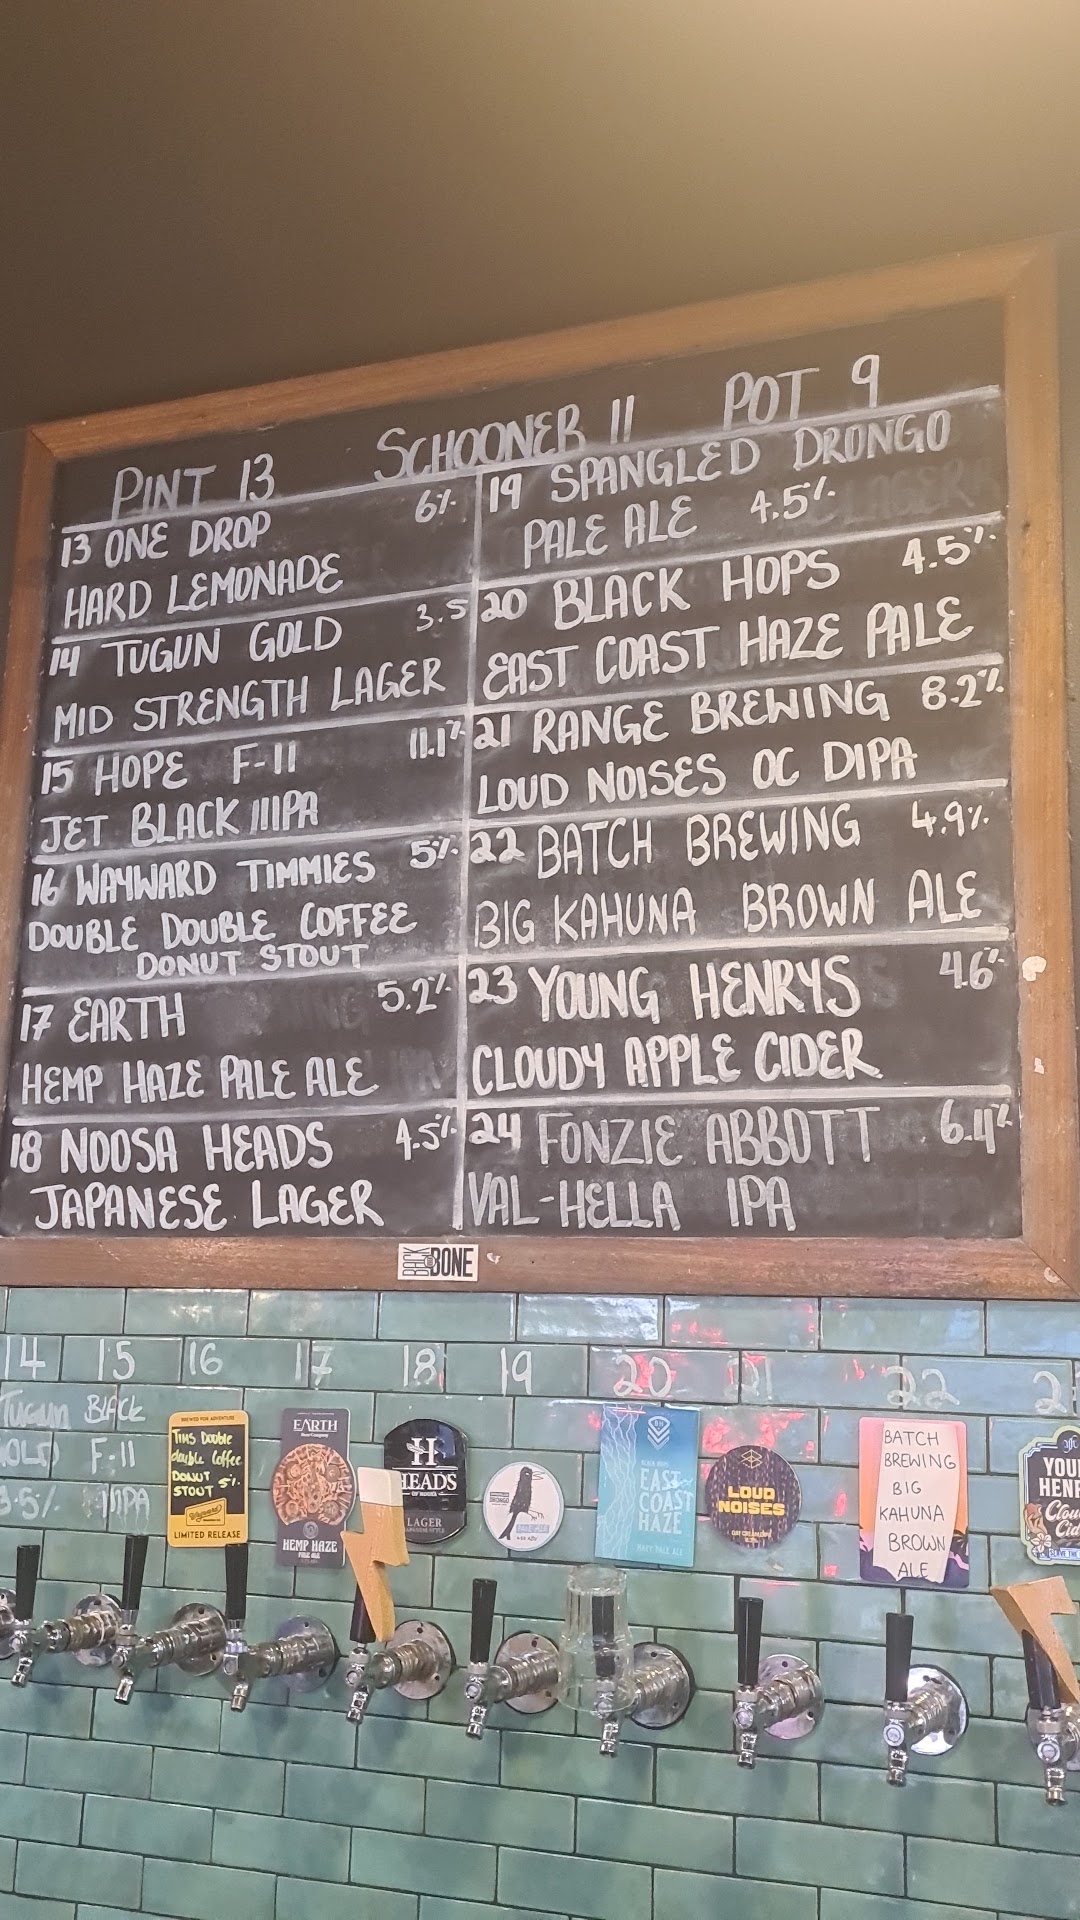 PINT 13 SCHOONER 11 POT 9
13 ONE DROP 6%
HARD LEMONADE
14 TUGUN GOLD 3.5
MID STRENGTH LAGER
15 HOPE F-11 11.1%
JET BLACK IIIPA
16 WAYWARD TIMMIES 5%
DOUBLE DOUBLE COFFEE
DONUT STOUT
17 EARTH 5.2%
HEMP HAZE PALE ALE
18 NOOSA HEADS 4.5%
JAPANESE LAGER
19 SPANGLED DRONGO
PALE ALE 4.5%
20 BLACK HOPS 4.5%
EAST COAST HAZE PALE
21 RANGE BREWING 8.2%
LOUD NOISES OC DIPA
22 BATCH BREWING 4.9%
BIG KAHUNA BROWN ALE
23 YOUNG HENRYS 4.6%
CLOUDY APPLE CIDER
24 FONZIE ABBOTT 6.4%
VAL-HELLA IPA
BACK BONE
14 15 16 17 18 19 20 21 22
Tugun
3.5%
BLACK
F-11
IIIPA
BREWED FOR ADVENTURE
Tims Double
double Coffee
DONUT
STOUT 5%
Wayward
LIMITED RELEASE
EARTH
HEMP HAZE
PALE ALE
H
HEADS
LAGER
BH
BLACK HOPS
EAST
COAST
HAZE
HAZY PALE ALE
LOUD
NOISES
BATCH
BREWING
BIG
KAHUNA
BROWN
ALE